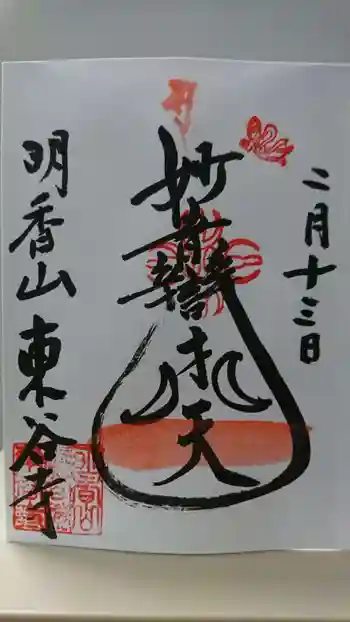 二月十三日
妙音辯才天
明香山東谷寺